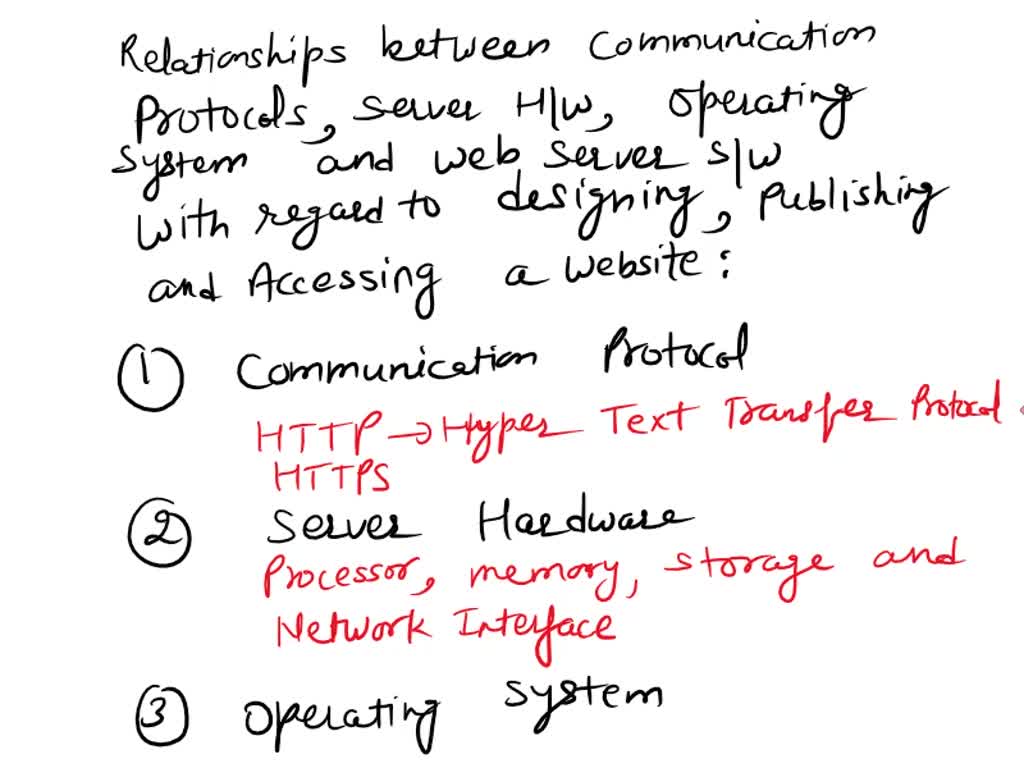 Relationships between Communication
Protocols, Server H/W, Operating
System and web Server S/W
With regard to designing, Publishing
and Accessing a website:
① Communication Protocol
HTTP → Hyper Text Transfer Protocol
HTTPS
② Server Hardware
Processor, memory, storage and
Network Interface
③ Operating System